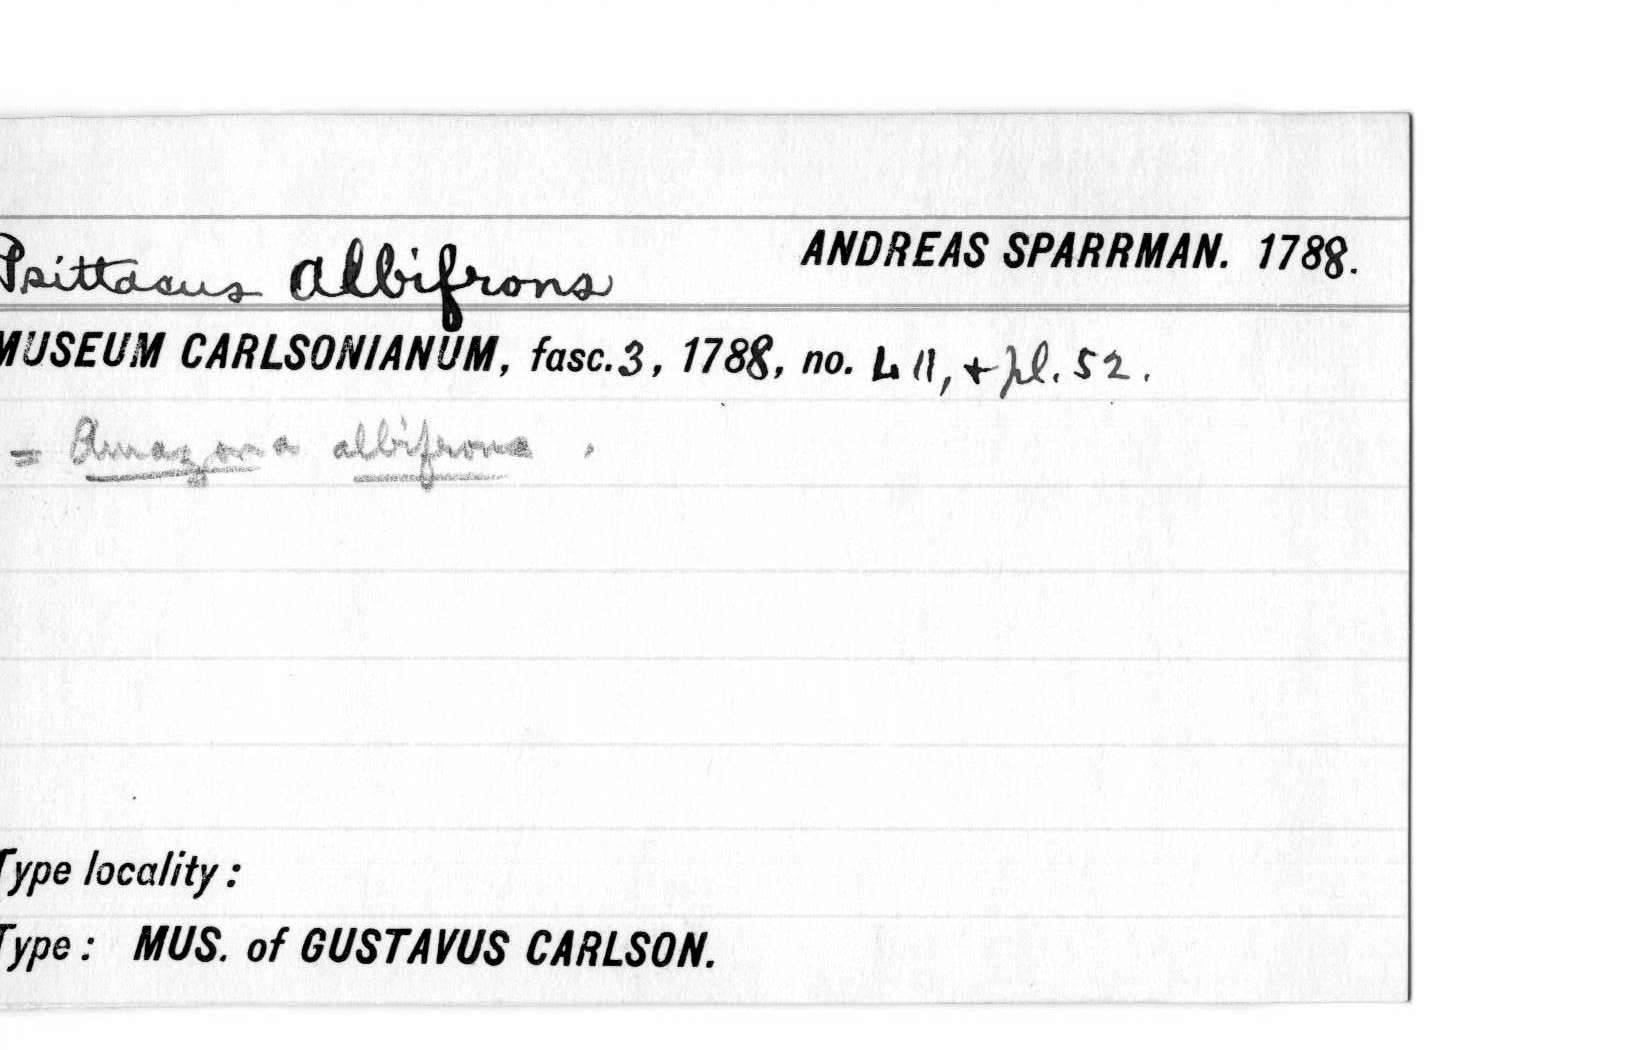 Psittacus albifrons ANDREAS SPARRMAN. 1788.
MUSEUM CARLSONIANUM, fasc. 3, 1788, no. LII, + pl. 52.
= Amazona albifrons .
Type locality :
Type : MUS. of GUSTAVUS CARLSON.